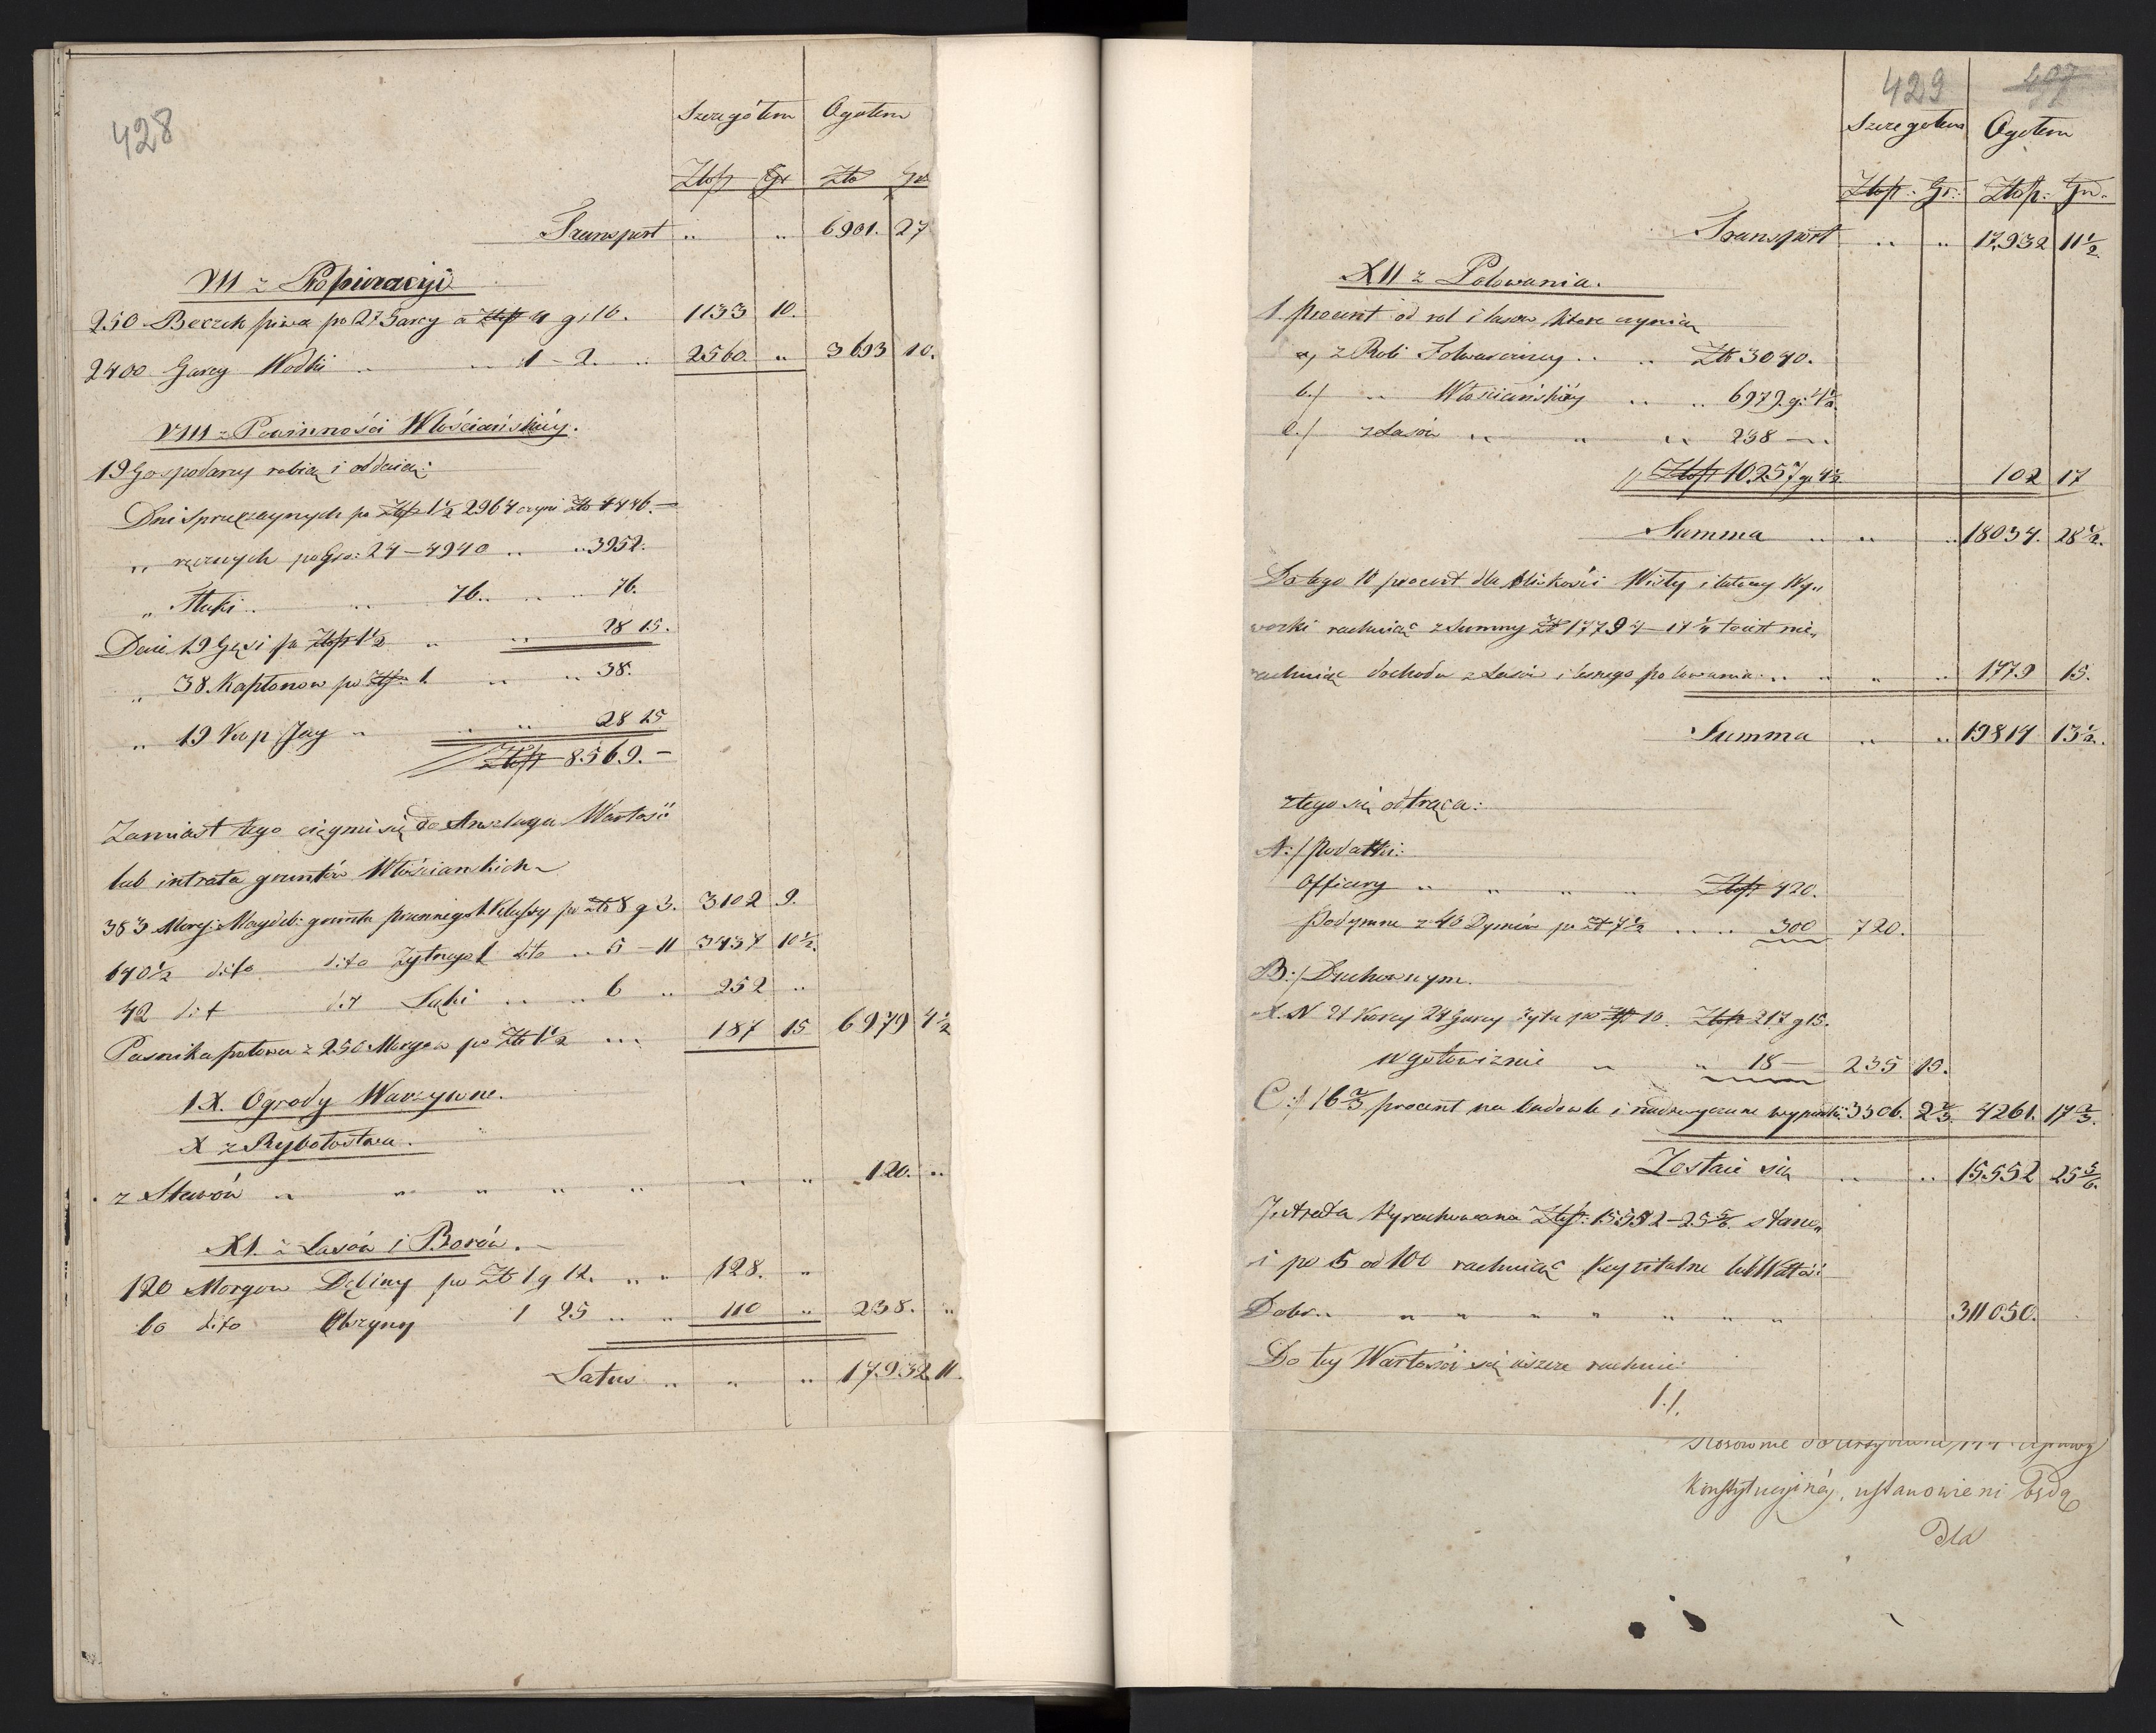 428
Szczegółem Ogołem
Złotp Gr Zło Gr
Transport " " 6901. 27
VII z Propinacyi
250 Beczek piwa po 27 Garcy a Złotp 4 gr 16. 1133 10.
2400 Garcy Wodki " " 1 - 2. " 2560. " 3693 10.
VIII z Powinności Włościańskiéy.
19 Gospodarzy robią i oddaią:
Dni sprzężaynych po Złotp 1½ 2964 czyni Zło 4446.—
" ręcznych po Gro: 24 — 4940 " " 3952.
" Tłuki " " 76. " " 76.
Dani 19 Gęsi po Złotp 1½ " " 28 15.
" 38. Kapłonow po Złp. 1. " " 38.
" 19 Kop Jay " " " 28 15
Złotp 8569.—
Zamiast tego ciągni się do Anszlagu Wartość
lub intrata gruntów Włościańskich
383 Morg: Magdeb: gruntu przennego 1 Klassy po Zło 8 g 3. 3102 9.
640½ dito dito Zytnego 1 dito " 5 — 11 3437 10½.
42 dit dit Łąki " " 6 " 252 "
Pasnika połowa z 250 Morgow po Zło 1½ " " 187 15 6979 4½
IX. Ogrody Warzywne.
X z Rybołostwa.
z Stawów " " " " " " " 120. "
XI. z Lasów i Borów.
120 Morgow Dębiny po Zło 1 g 12. " " 128. "
60 dito Olszyny 1 25 " " 110 " 238. "
Latus " " " 17932 11.
429 497
Szczegołem Ogołem
Złotp: Gr: Złotp: Gr.
Transport " " 17,932 11½.
XII z Polowania.
1. procent od rol i lasow które czynią
a, z Roli Folwarczney " " Zło 3040.
b./ " Włościańskiéy " " 6979. g: 4½.
c./ z Lasów " " " 238 — "
Złotp 10257 gr 4½ 102 17
Summa " " " 18034. 28½.
Do tego 10 procent dla bliskości Wisły i łatwey Wy"
wozki rachuiąc z Summy Zł 17794—17¼ to iest nie"
rachuiąc dochodu z Lasów i lesnego polowania " " " " 1779 15.
Summa " " 19814 13½.
z tego się odtrąca:
A:/ Podatki:
Offiary " " " " Złotp 420.
Podymne z 40 Dymów po Zł 7½ " " 300 720.
B:/ Duchownym.
X. N 21 Korcy 24 Garcy Zyta po Złp 10. Złotp 217 g 15.
w gotowiznie " " 18 — 235 15.
C:/ 16⅔ procent na budowle i nadzwyczayne wypadki 3306. 2⅔. 4261. 17⅔.
Zostaie się " " 15552 25⅚.
Jntrata Wyrachowana Złotp: 15552—25⅚ stano"
i po 5 od 100 rachuiąc Kapitalne lub Wartość
Dobr " " " " " " " 311050.
Do tey Wartości się ieszcze rachuie:
1./.
Konstytucyinéy, ustanowieni będą
Dla